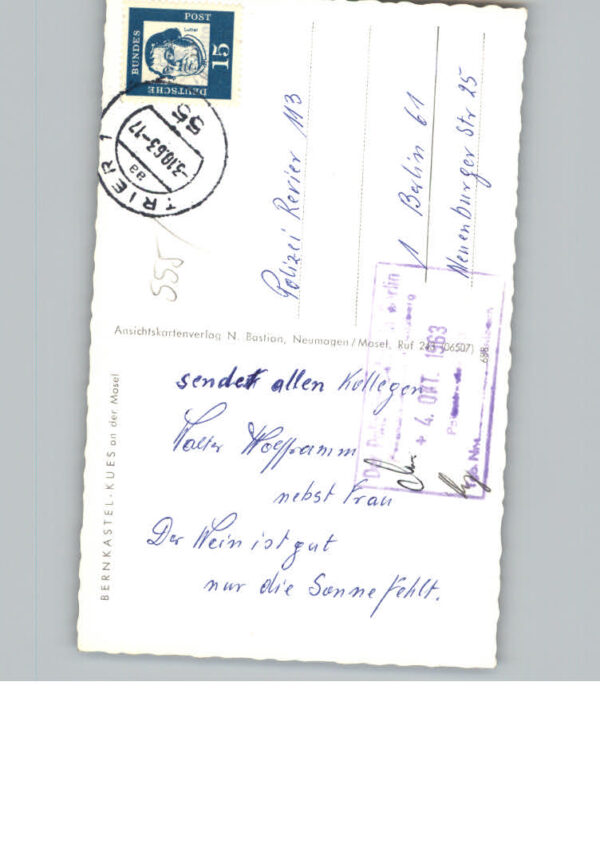 DEUTSCHE
BUNDES
POST
15
Luther
TRIER 1
aa
-3.10.63-17
55
555
Polizei Revier 113
1 Berlin 61
Neuenburger Str 25
Ansichtskartenverlag N. Bastian, Neumagen/Mosel, Ruf 243 (06507)
698
BERNKASTEL-KUES an der Mosel
+ 4. OKT. 1963
sendet allen Kollegen
Walter Wolframm
nebst Frau
Der Wein ist gut
nur die Sonne fehlt.